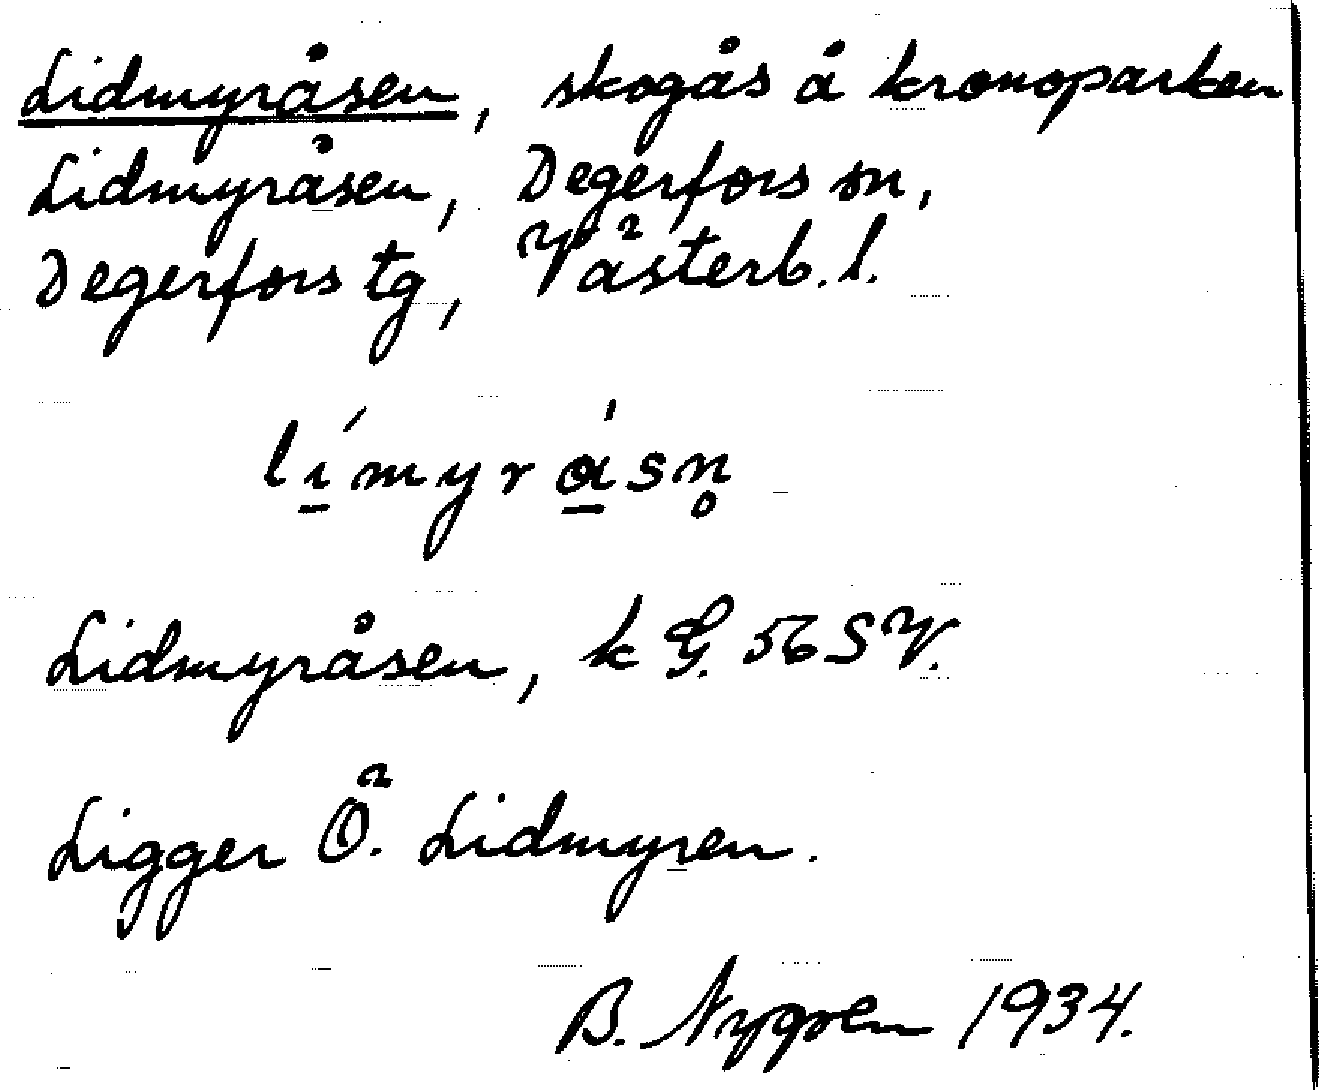 Lidmyråsen, skogås å kronoparken
Lidmyråsen, Degerfors sn,
Degerfors tg, Västerb. l.
lı̱́myrα̱̍sn̥
Lidmyråsen, k G. 56 SV.
Ligger Ö. Lidmyren.
B. Nygren 1934.